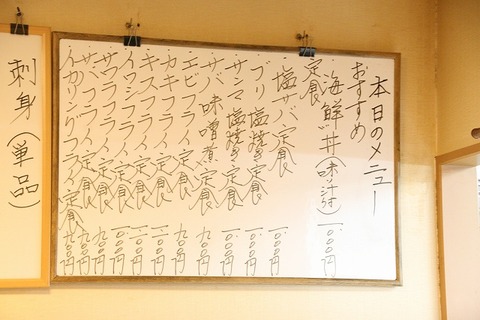 本日のメニュー
おすすめ
海鮮丼(味噌汁付) 一、〇〇〇円
定食
塩サバ定食 一、〇〇〇円
ブリ塩焼き定食 一、〇〇〇円
サンマ塩焼き定食 一、〇〇〇円
サバ味噌煮定食 九〇〇円
エビフライ定食 九〇〇円
カキフライ定食 九〇〇円
キスフライ定食
イワシフライ定食
サワラフライ定食
サバフライ定食 九〇〇円
イカリングフライ定食 九〇〇円
刺身(単品)